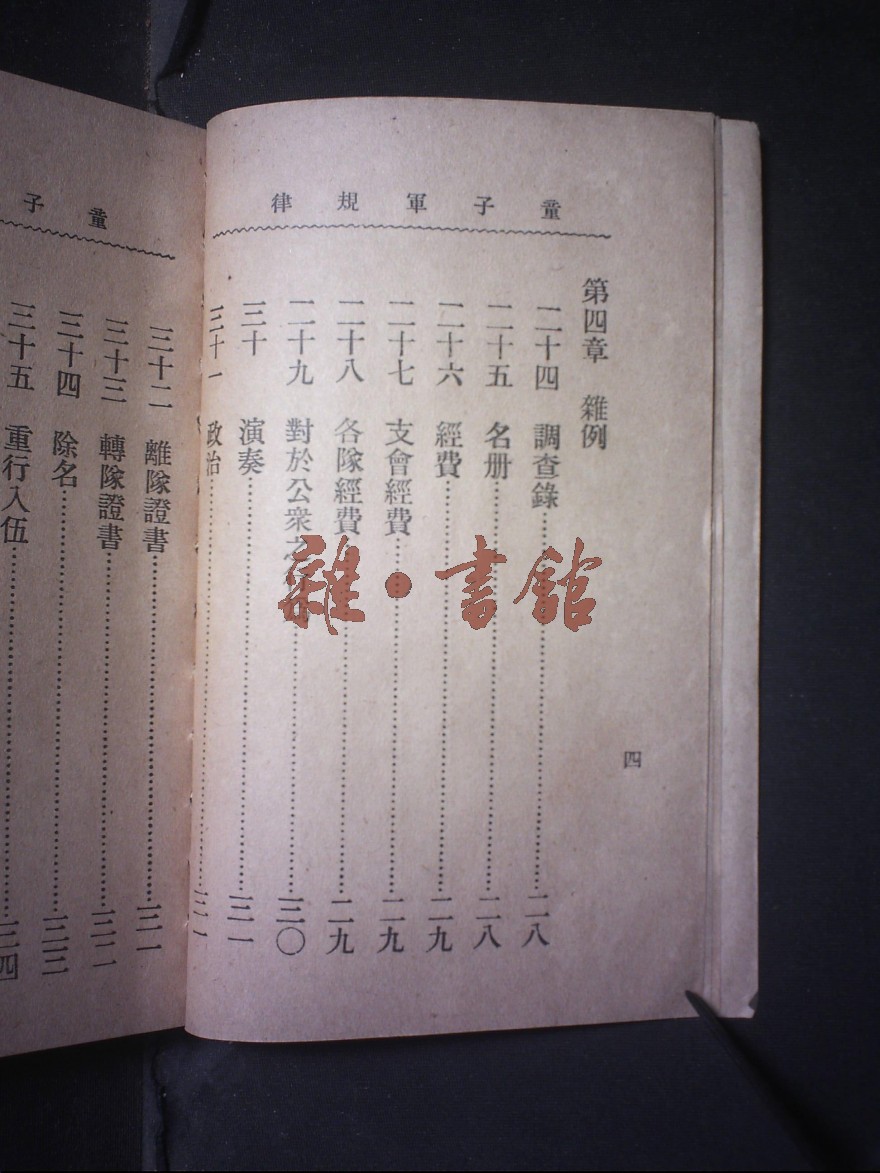 童子軍規律
第四章 雜例
二十四 調查錄……二八
二十五 名册……二八
二十六 經費……二九
二十七 支會經費……二九
二十八 各隊經費……二九
二十九 對於公衆之……三〇
三十 演奏……三一
三十一 政治……三一
四
童子
三十二 離隊證書……三一
三十三 轉隊證書……三二
三十四 除名……三三
三十五 重行入伍……三四
雜·書館